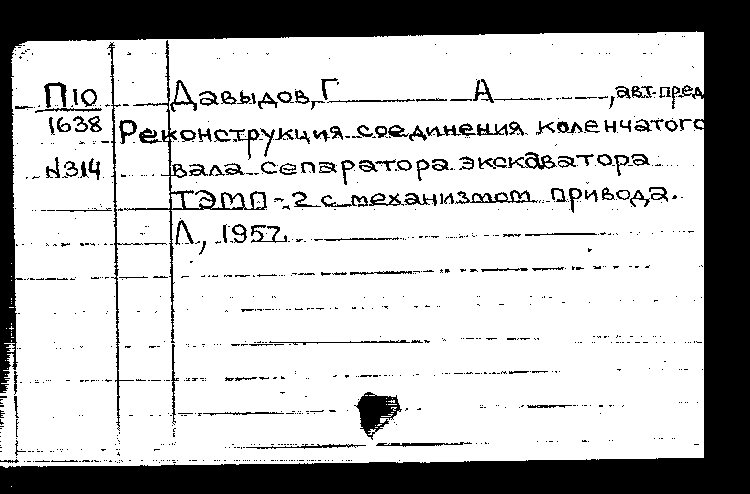 П10 Давыдов, Г А , авт. пред
1638 Реконструкция соединения коленчатого
N314 вала сепаратора экскаватора
ТЭМП-2 с механизмом привода.
Л, 1957.